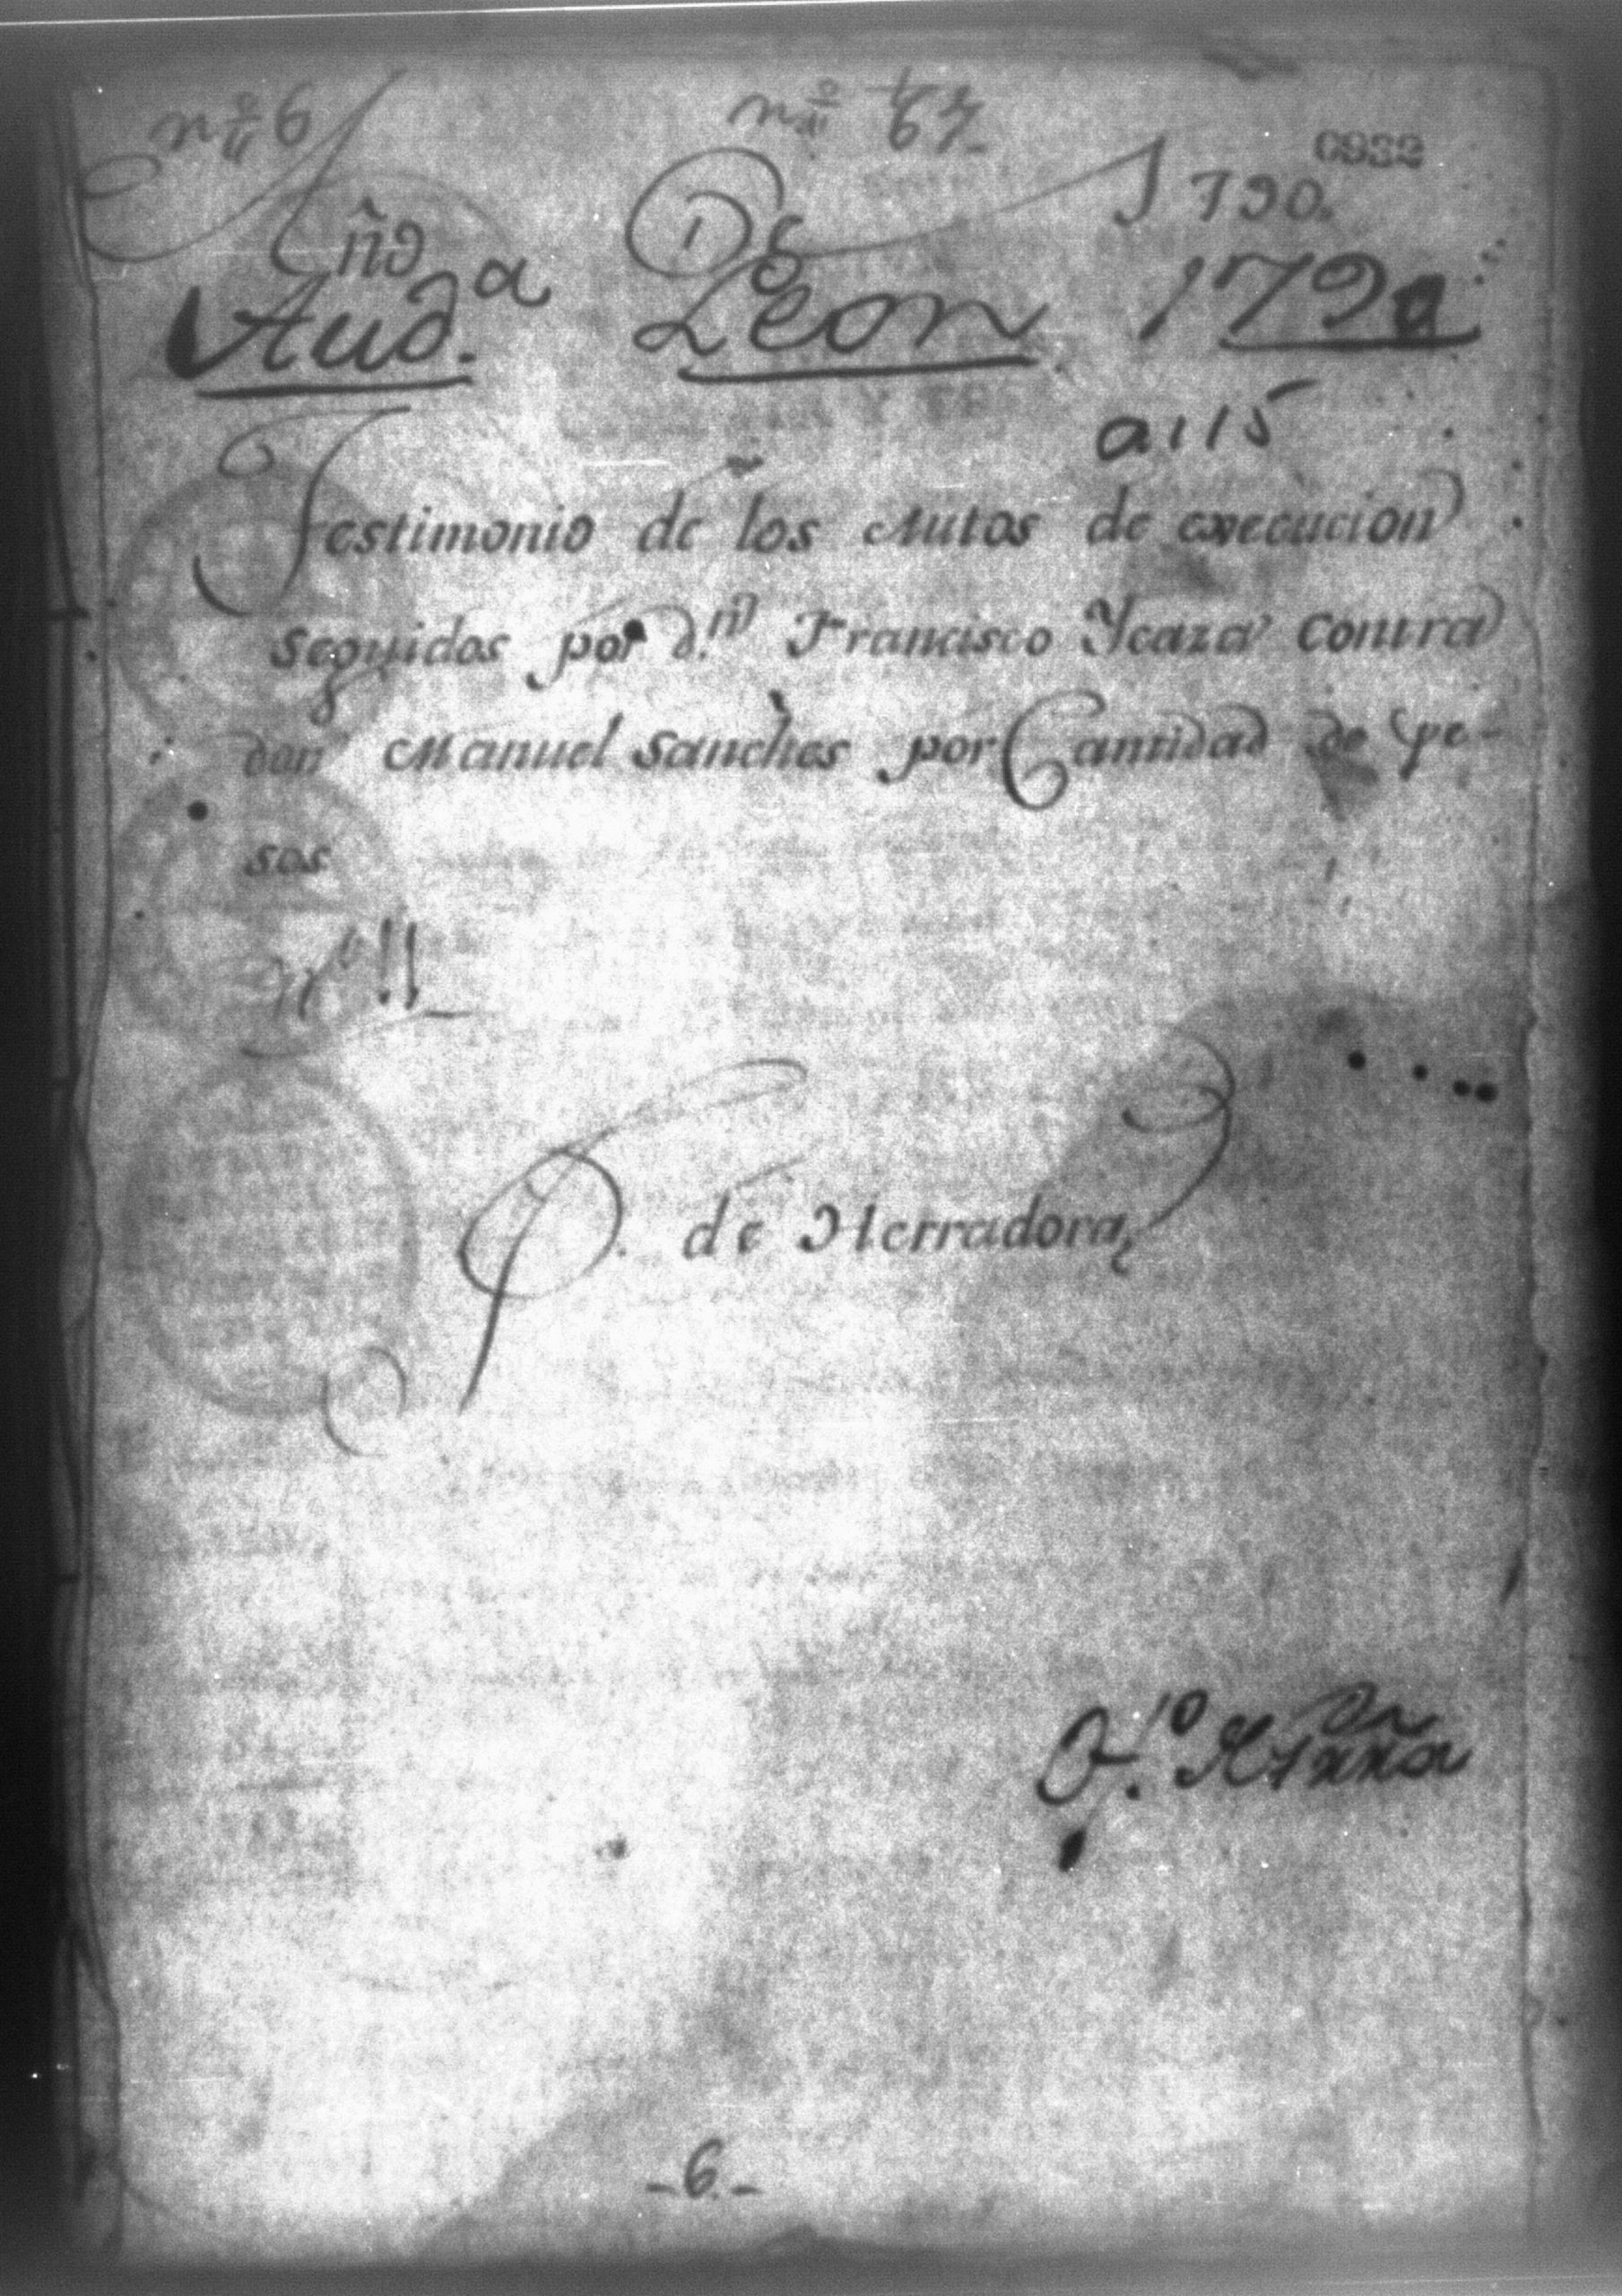 nº 6 nº 67
0932
Año De 1790.
Aud.ª Leon 179a
a115
Testimonio de los Autos de execucion
seguidos por d.n Francisco Ycaza contra
don Manuel Sanches por Cantidad de pe-
sos
11
P. de Herradora
-6-